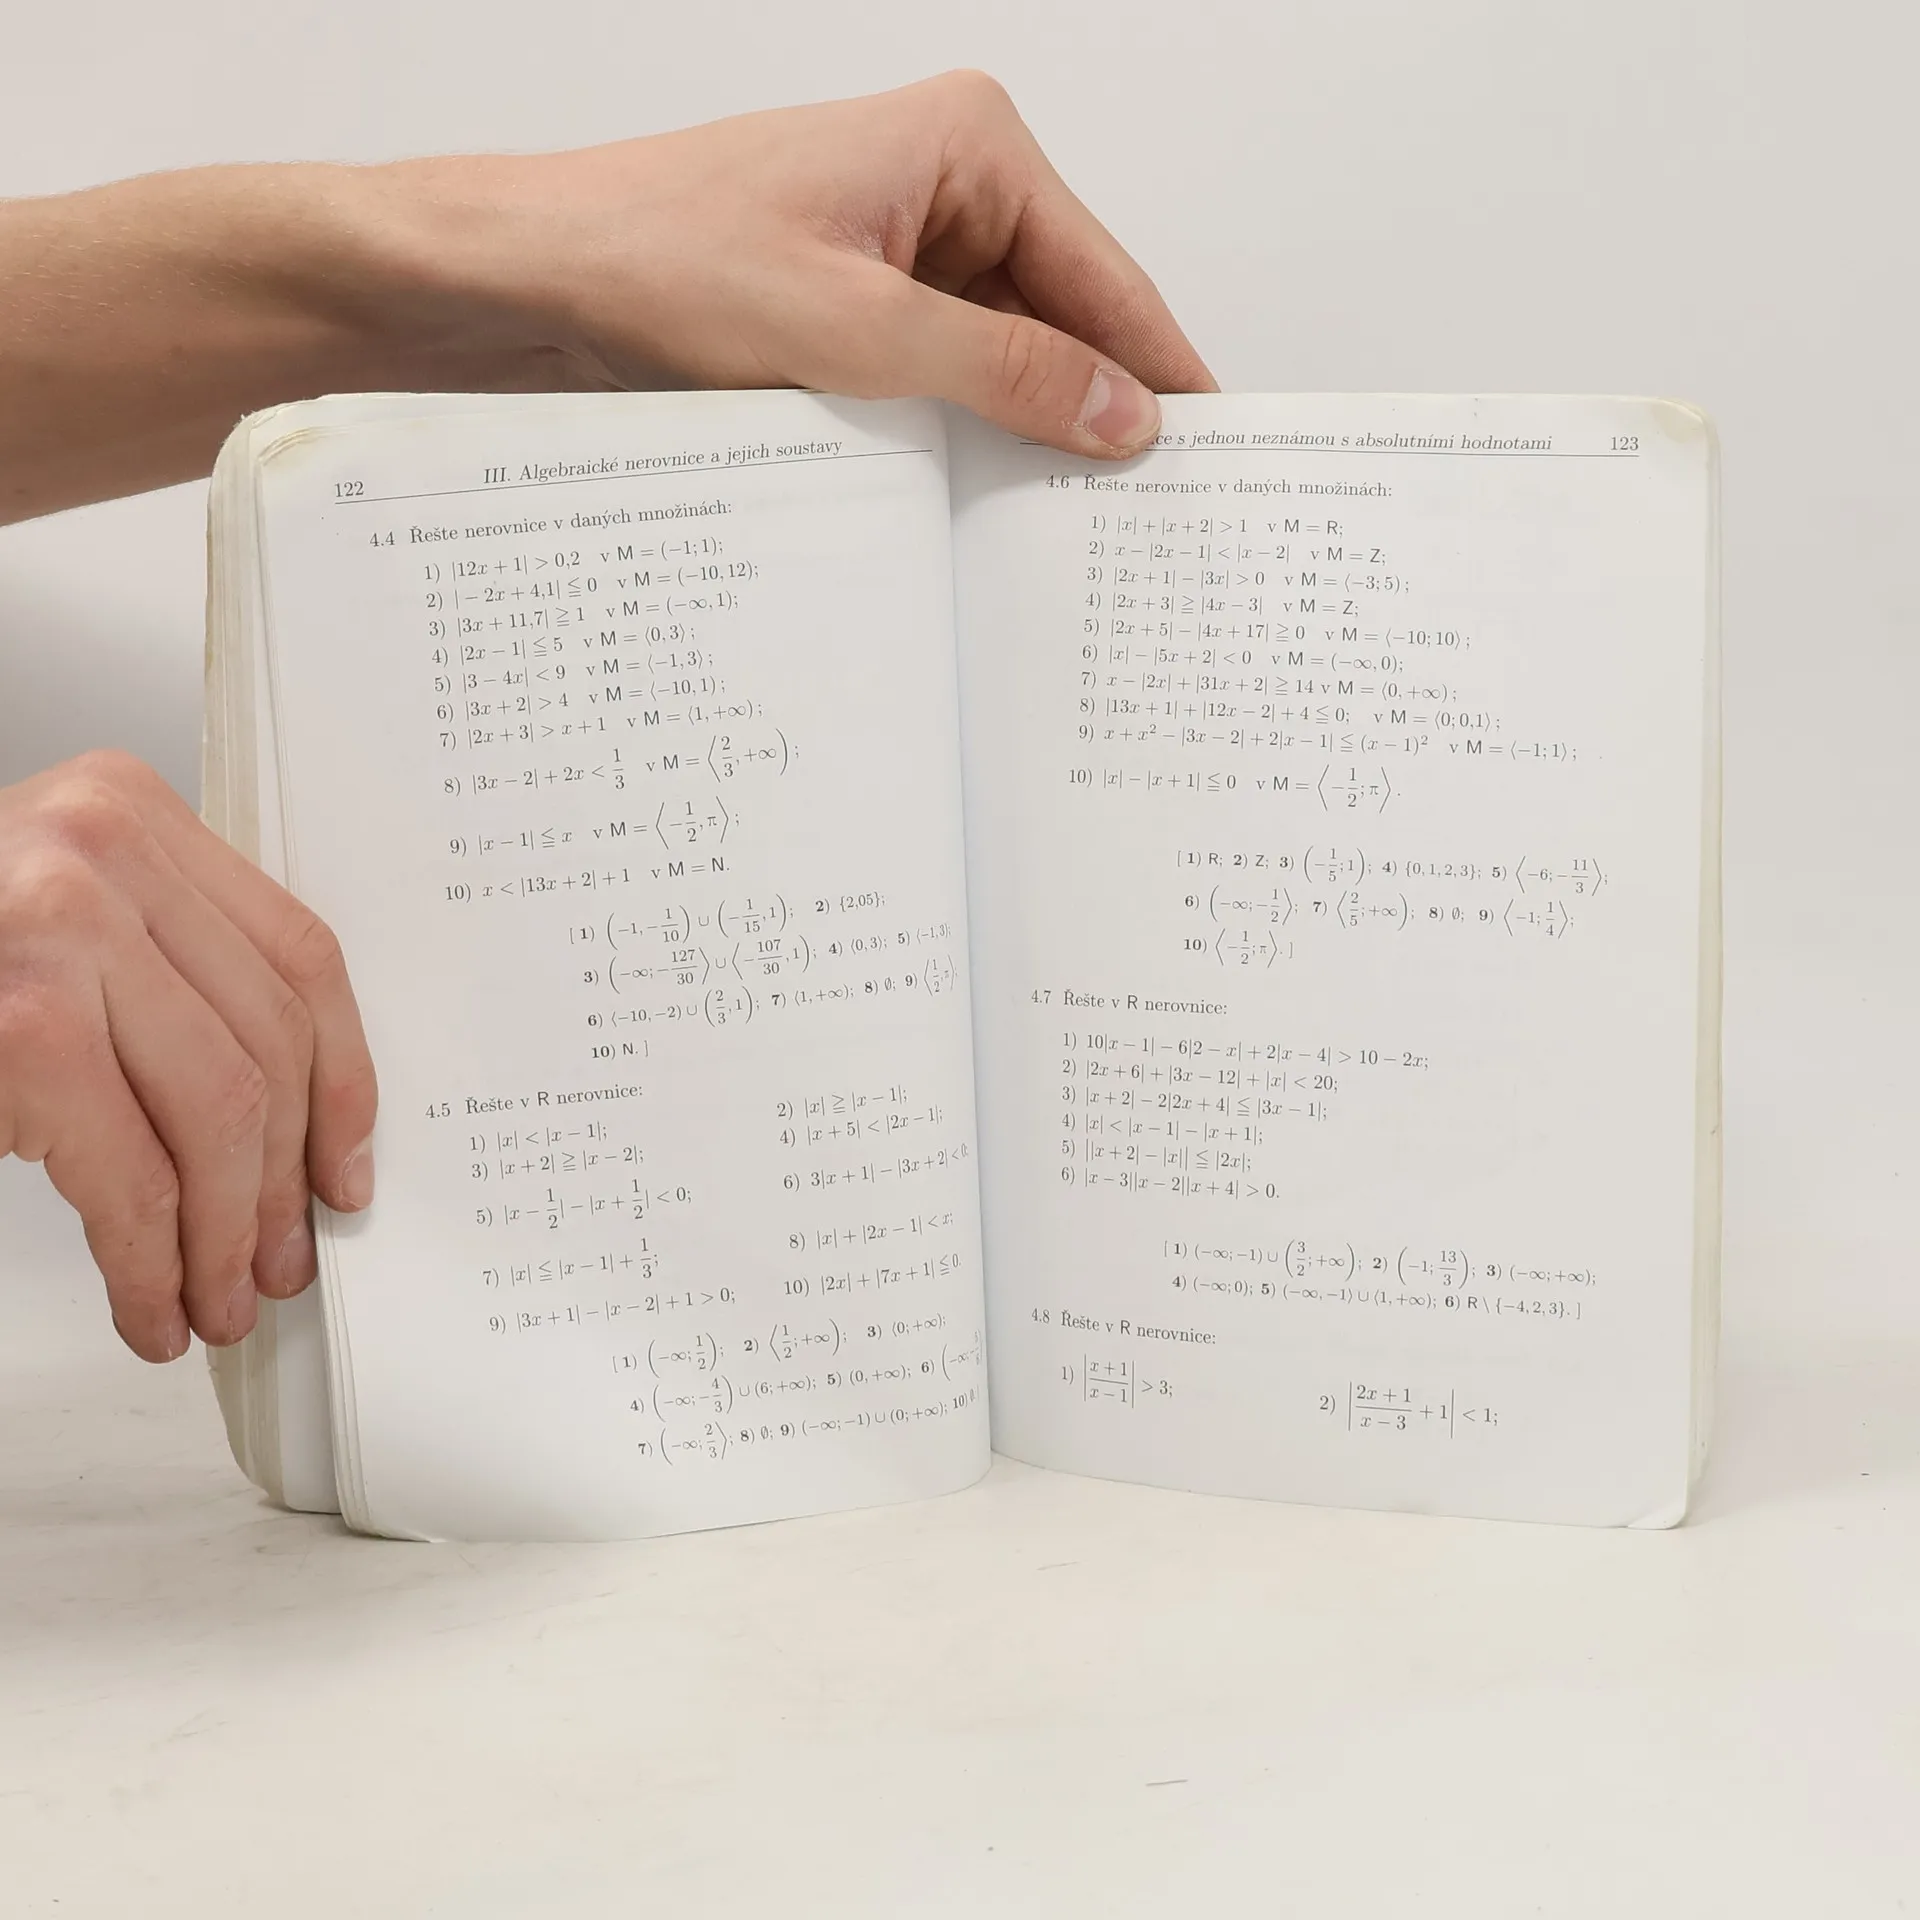 122 III. Algebraické nerovnice a jejich soustavy
4.4 Řešte nerovnice v daných množinách:
1) |12x + 1| > 0,2 v M = (−1; 1);
2) | − 2x + 4,1| ≦ 0 v M = (−10, 12);
3) |3x + 11,7| ≧ 1 v M = (−∞, 1);
4) |2x − 1| ≦ 5 v M = ⟨0, 3⟩;
5) |3 − 4x| < 9 v M = ⟨−1, 3⟩;
6) |3x + 2| > 4 v M = ⟨−10, 1);
7) |2x + 3| > x + 1 v M = ⟨1, +∞);
8) |3x − 2| + 2x < 1/3 v M = ⟨2/3, +∞);
9) |x − 1| ≦ x v M = ⟨−1/2, π⟩;
10) x < |13x + 2| + 1 v M = N.
[ 1) (−1, −1/10) ∪ (−1/15, 1); 2) {2,05};
3) (−∞; −127/30⟩ ∪ ⟨−107/30, 1); 4) ⟨0, 3⟩; 5) (−1, 3);
6) ⟨−10, −2) ∪ (2/3, 1); 7) ⟨1, +∞); 8) ∅; 9) ⟨1/2, π⟩;
10) N. ]
4.5 Řešte v R nerovnice:
1) |x| < |x − 1|; 2) |x| ≧ |x − 1|;
3) |x + 2| ≧ |x − 2|; 4) |x + 5| < |2x − 1|;
5) |x − 1/2| − |x + 1/2| < 0; 6) 3|x + 1| − |3x + 2| < 0;
7) |x| ≦ |x − 1| + 1/3; 8) |x| + |2x − 1| < x;
9) |3x + 1| − |x − 2| + 1 > 0; 10) |2x| + |7x + 1| ≦ 0.
[ 1) (−∞; 1/2); 2) ⟨1/2; +∞); 3) ⟨0; +∞);
4) (−∞; −4/3) ∪ (6; +∞); 5) (0, +∞); 6) (−∞; −
7) (−∞; 2/3⟩; 8) ∅; 9) (−∞; −1) ∪ (0; +∞); 10) ∅. ]
s jednou neznámou s absolutními hodnotami 123
4.6 Řešte nerovnice v daných množinách:
1) |x| + |x + 2| > 1 v M = R;
2) x − |2x − 1| < |x − 2| v M = Z;
3) |2x + 1| − |3x| > 0 v M = ⟨−3; 5);
4) |2x + 3| ≧ |4x − 3| v M = Z;
5) |2x + 5| − |4x + 17| ≧ 0 v M = ⟨−10; 10⟩;
6) |x| − |5x + 2| < 0 v M = (−∞, 0);
7) x − |2x| + |31x + 2| ≧ 14 v M = ⟨0, +∞);
8) |13x + 1| + |12x − 2| + 4 ≦ 0; v M = ⟨0; 0,1⟩;
9) x + x² − |3x − 2| + 2|x − 1| ≦ (x − 1)² v M = ⟨−1; 1⟩;
10) |x| − |x + 1| ≦ 0 v M = ⟨−1/2; π⟩.
[ 1) R; 2) Z; 3) (−1/5; 1); 4) {0, 1, 2, 3}; 5) ⟨−6; −11/3⟩;
6) (−∞; −1/2); 7) ⟨2/5; +∞); 8) ∅; 9) ⟨−1; 1/4⟩;
10) ⟨−1/2; π⟩. ]
4.7 Řešte v R nerovnice:
1) 10|x − 1| − 6|2 − x| + 2|x − 4| > 10 − 2x;
2) |2x + 6| + |3x − 12| + |x| < 20;
3) |x + 2| − 2|2x + 4| ≦ |3x − 1|;
4) |x| < |x − 1| − |x + 1|;
5) ||x + 2| − |x|| ≦ |2x|;
6) |x − 3||x − 2||x + 4| > 0.
[ 1) (−∞; −1) ∪ (3/2; +∞); 2) (−1; 13/3); 3) (−∞; +∞);
4) (−∞; 0); 5) (−∞, −1⟩ ∪ ⟨1, +∞); 6) R \ {−4, 2, 3}. ]
4.8 Řešte v R nerovnice:
1) |(x + 1)/(x − 1)| > 3; 2) |(2x + 1)/(x − 3) + 1| < 1;